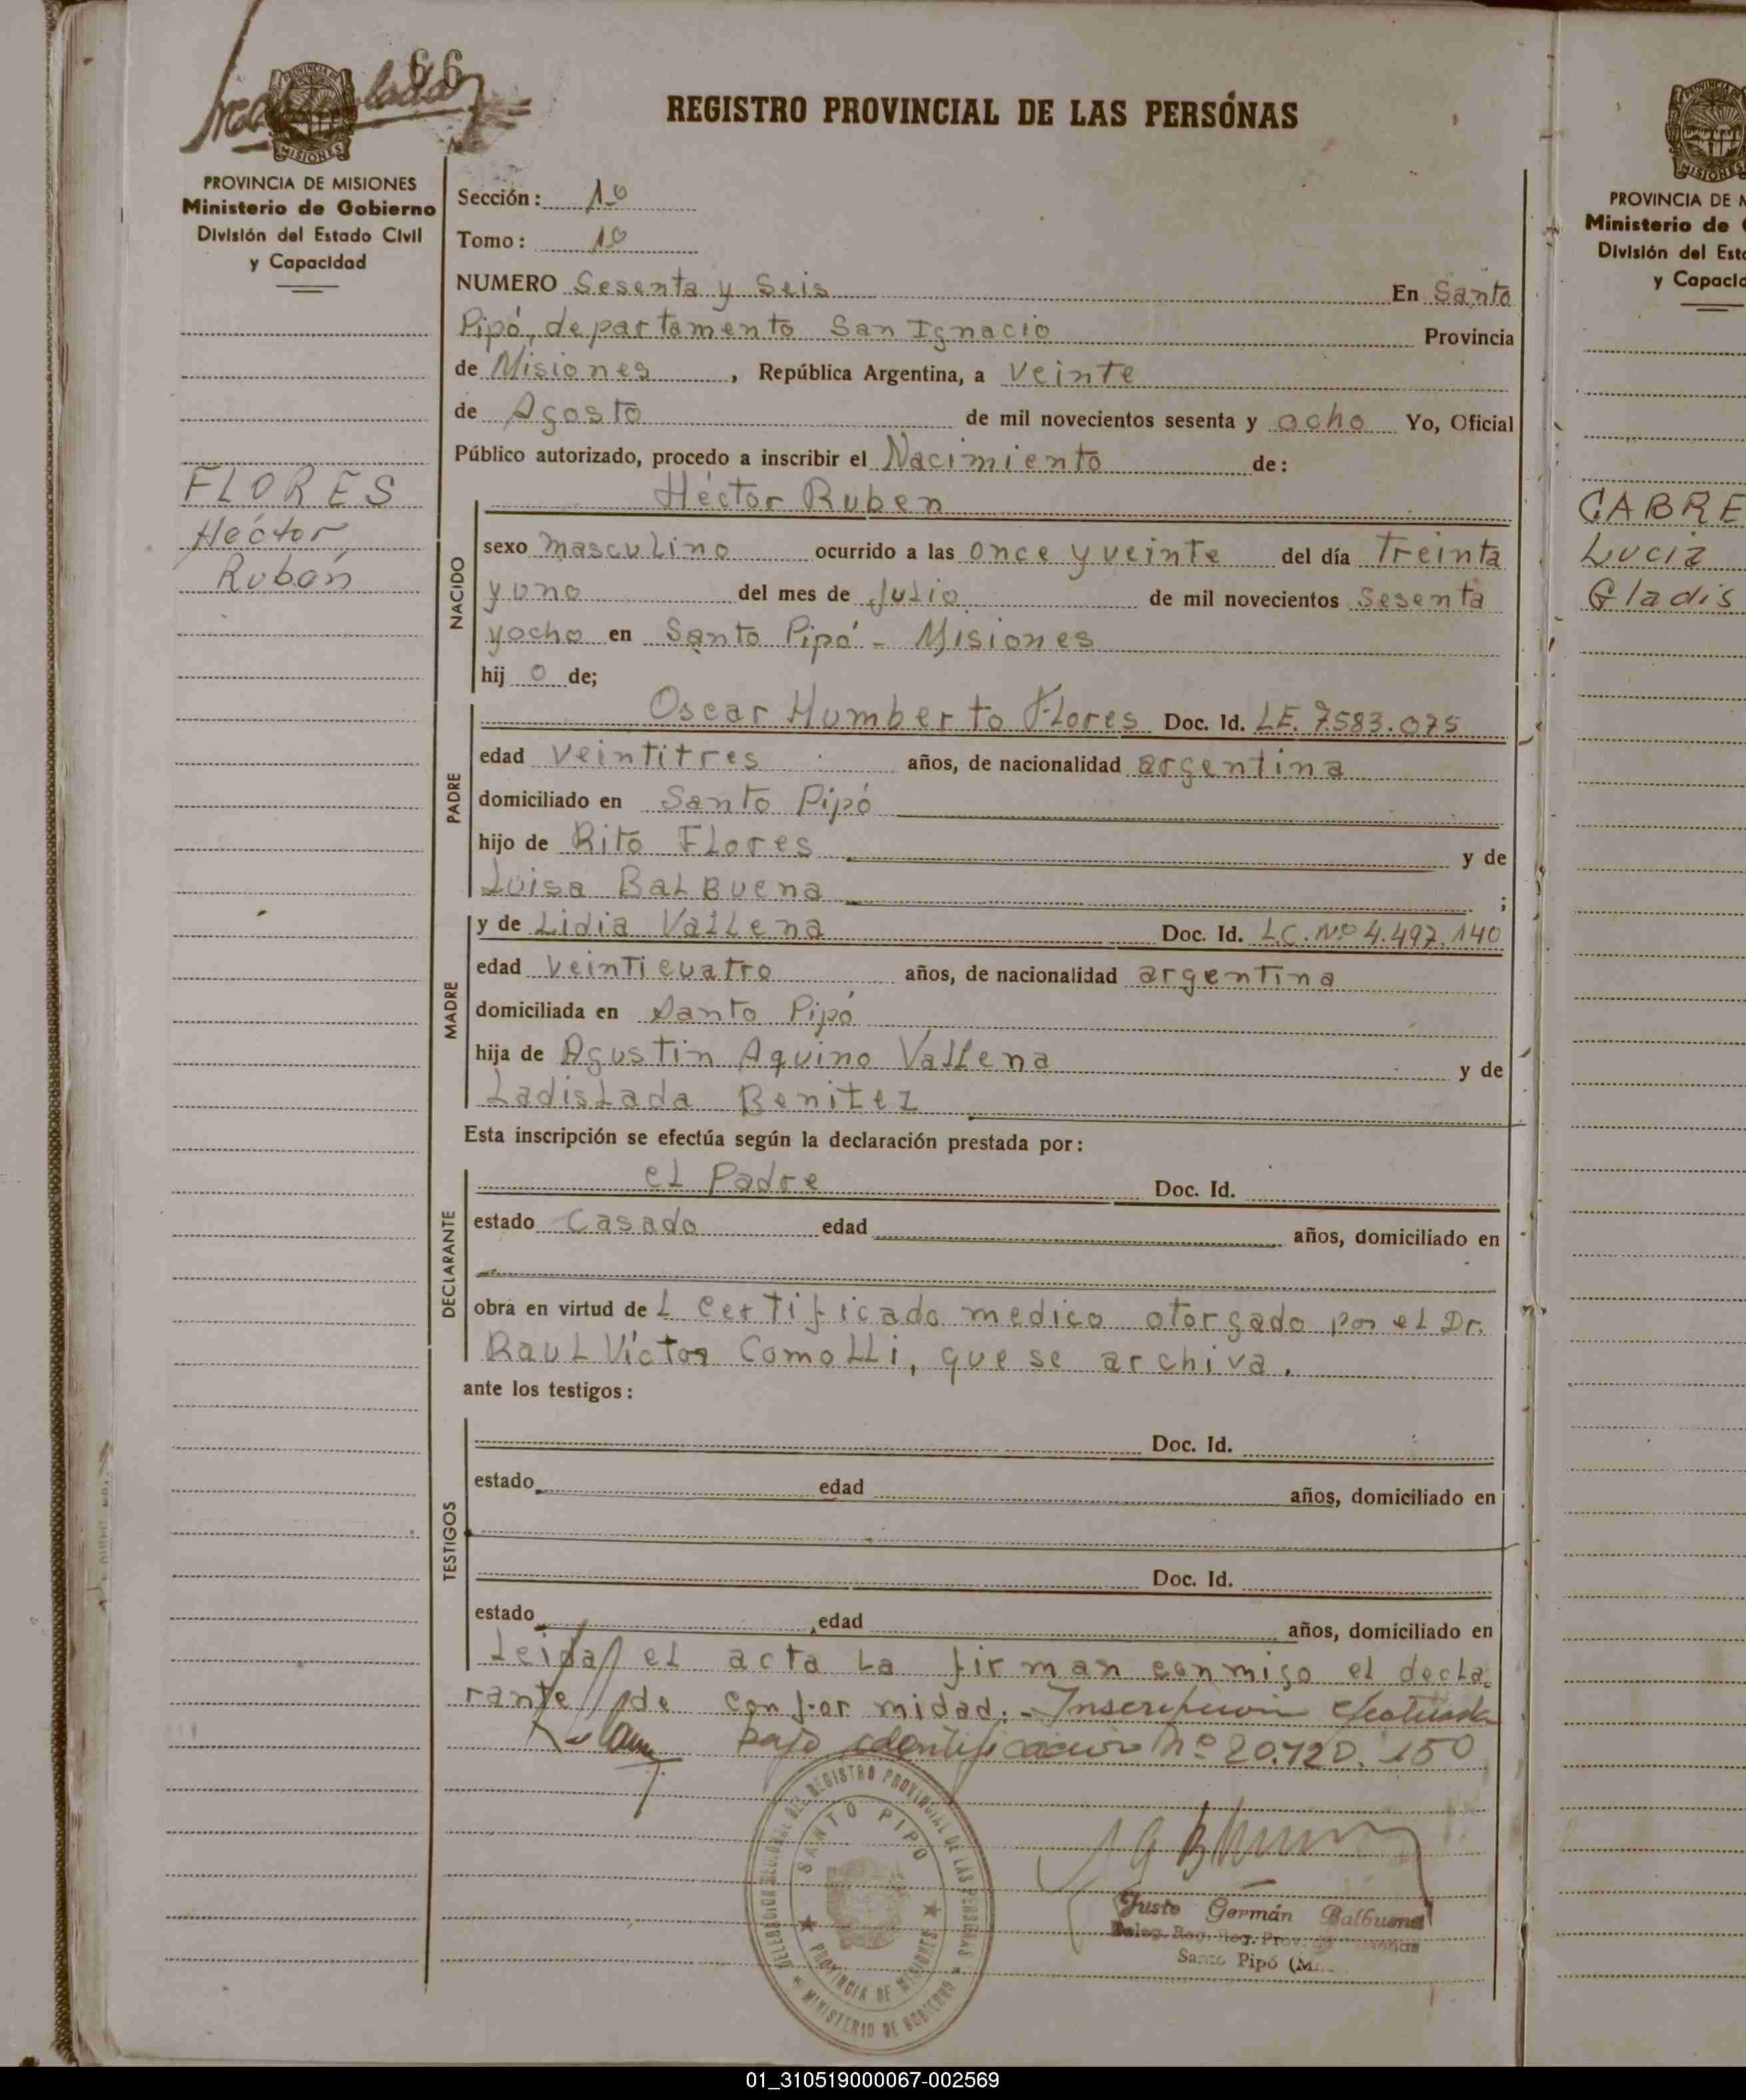 66
REGISTRO PROVINCIAL DE LAS PERSONAS
MISIONES
PROVINCIA DE MISIONES
Ministerio de Gobierno
División del Estado Civil
y Capacidad
FLORES
Héctor
Rubén
Sección: 1º
Tomo: 1º
NUMERO Sesenta y Seis En Santo
Pipó, departamento San Ignacio Provincia
de Misiones, República Argentina, a Veinte
de Agosto de mil novecientos sesenta y ocho Yo, Oficial
Público autorizado, procedo a inscribir el Nacimiento de:
Héctor Ruben
NACIDO
sexo masculino ocurrido a las once y veinte del día Treinta
y uno del mes de Julio de mil novecientos Sesenta
yocho en Santo Pipó - Misiones
hijo de;
PADRE
Oscar Humberto Flores Doc. Id. LE. 7.583.075
edad veintitres años, de nacionalidad argentina
domiciliado en Santo Pipó
hijo de Rito Flores y de
Luisa Balbuena ;
MADRE
y de Lidia Vallena Doc. Id. L.C. Nº 4.497.140
edad veinticuatro años, de nacionalidad argentina
domiciliada en Santo Pipó
hija de Agustin Aquino Vallena y de
Ladislada Benitez
Esta inscripción se efectúa según la declaración prestada por:
DECLARANTE
el Padre Doc. Id.
estado Casado edad años, domiciliado en
obra en virtud de L certificado medico otorgado por el Dr.
Raul Víctor Comolli, que se archiva.
ante los testigos:
TESTIGOS
Doc. Id.
estado edad años, domiciliado en
Doc. Id.
estado edad años, domiciliado en
Leida el acta la firman conmigo el decla
rante de conformidad.- Inscripcion efectuada
bajo identificacion Nº 20.120.150
DEL REGISTRO PROVINCIAL DE LAS PERSONAS
SANTO PIPO
PROVINCIA DE MISIONES
MINISTERIO DE GOBIERNO
Justo Germán Balbuena
Santo Pipó
PROVINCIA DE
Ministerio de
División del
y
CABRE
Lucia
Gladis
01_310519000067-002569